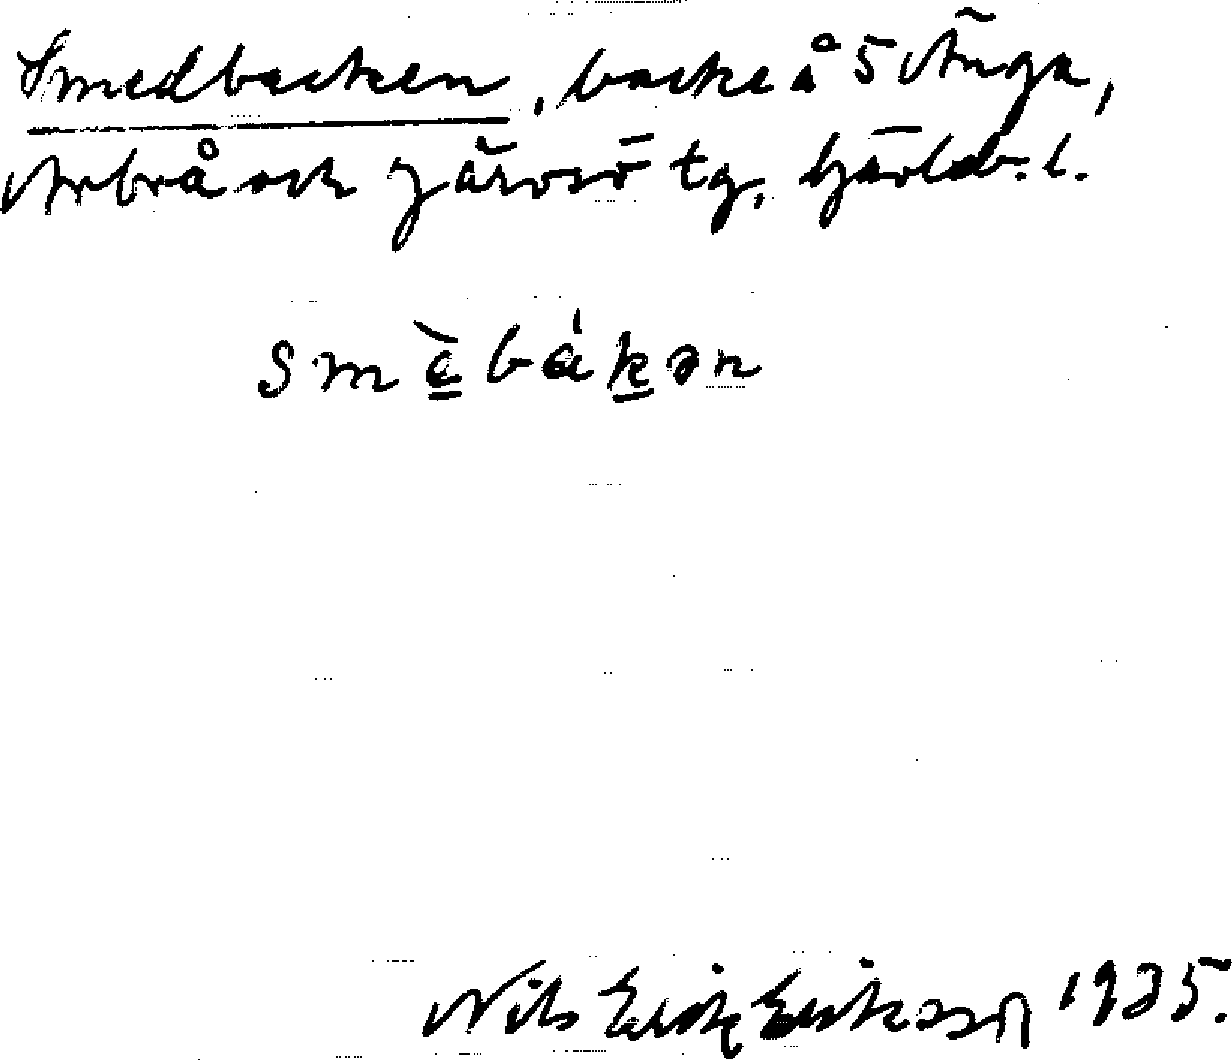 Smedbacken, backe å 5 Änga,
Arbrå och Järvsö tg, Gävleb. l.
smè̲bák̲ən
Nils Erik Eriksson 1935.